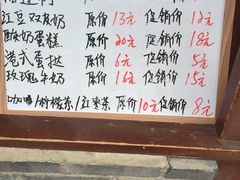 红豆双皮奶 原价13元 促销价12元
酸奶蛋糕 原价20元 促销价18元
港式蛋挞 原价6元 促销价5元
玫瑰牛奶 原价16元 促销价15元
咖啡/柠檬茶/红枣茶 原价10元促销价8元